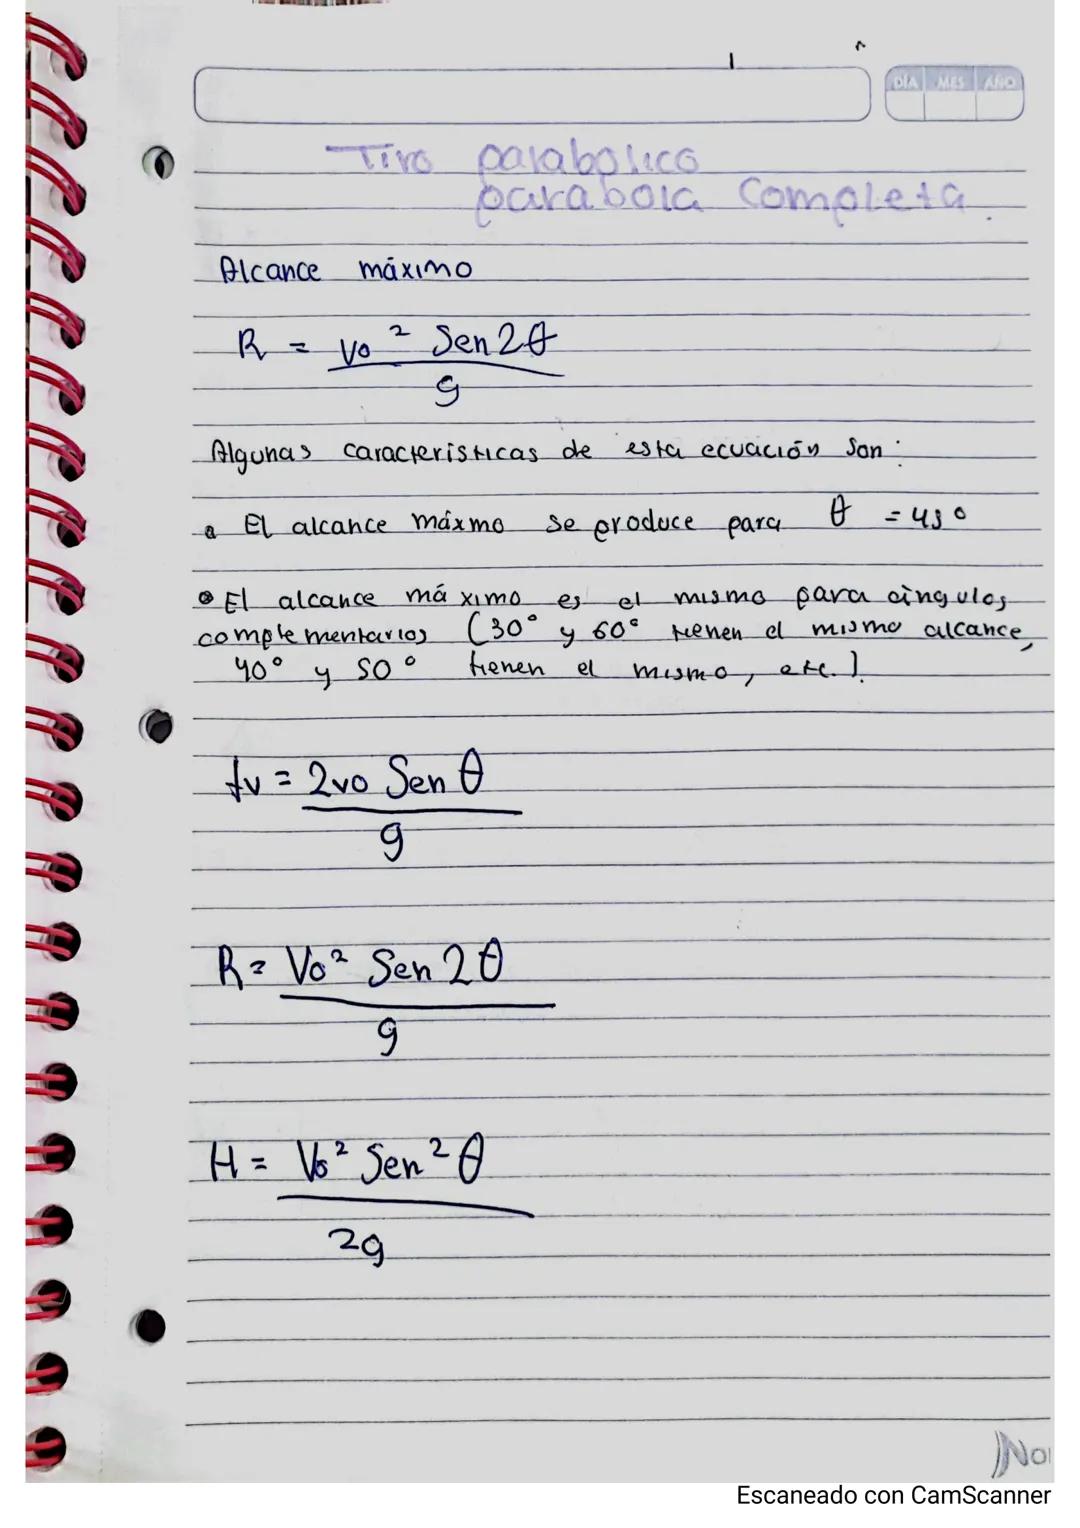 DÍA MES AÑO
Tiro parabolico
parabola Completa.
Alcance máximo
R = Vo² Sen 2θ
g
Algunas caracteristicas de esta ecuación Son:
El alcance máxmo se produce para θ = 45°
El alcance máximo es el mismo para ángulos
complementarios (30° y 60° tienen el mismo alcance,
40° y 50° tienen el mismo, etc.).
tv = 2vo Sen θ
g
R = Vo² Sen 2θ
g
H = Vo² Sen² θ
2g
Escaneado con CamScanner